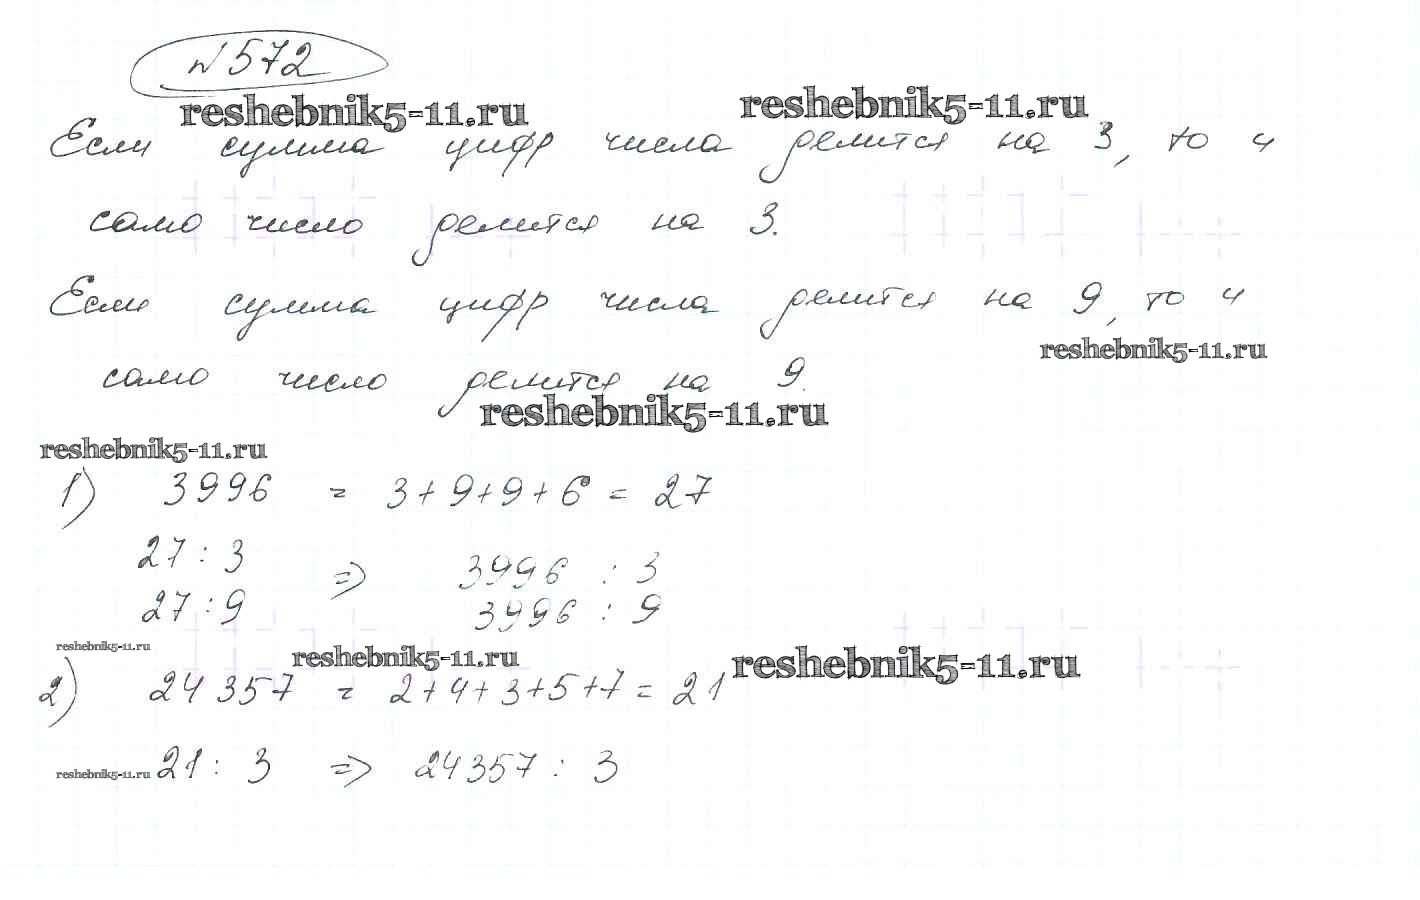 №572
reshebnik5-11.ru reshebnik5-11.ru
Если сумма цифр числа делится на 3, то и
само число делится на 3.
Если сумма цифр числа делится на 9, то и
reshebnik5-11.ru
само число делится на 9.
reshebnik5-11.ru
reshebnik5-11.ru
1) 3996 = 3+9+9+6 = 27
27 : 3
27 : 9 => 3996 : 3
3996 : 9
reshebnik5-11.ru reshebnik5-11.ru reshebnik5-11.ru
2) 24357 = 2+4+3+5+7 = 21
reshebnik5-11.ru 21 : 3 => 24357 : 3